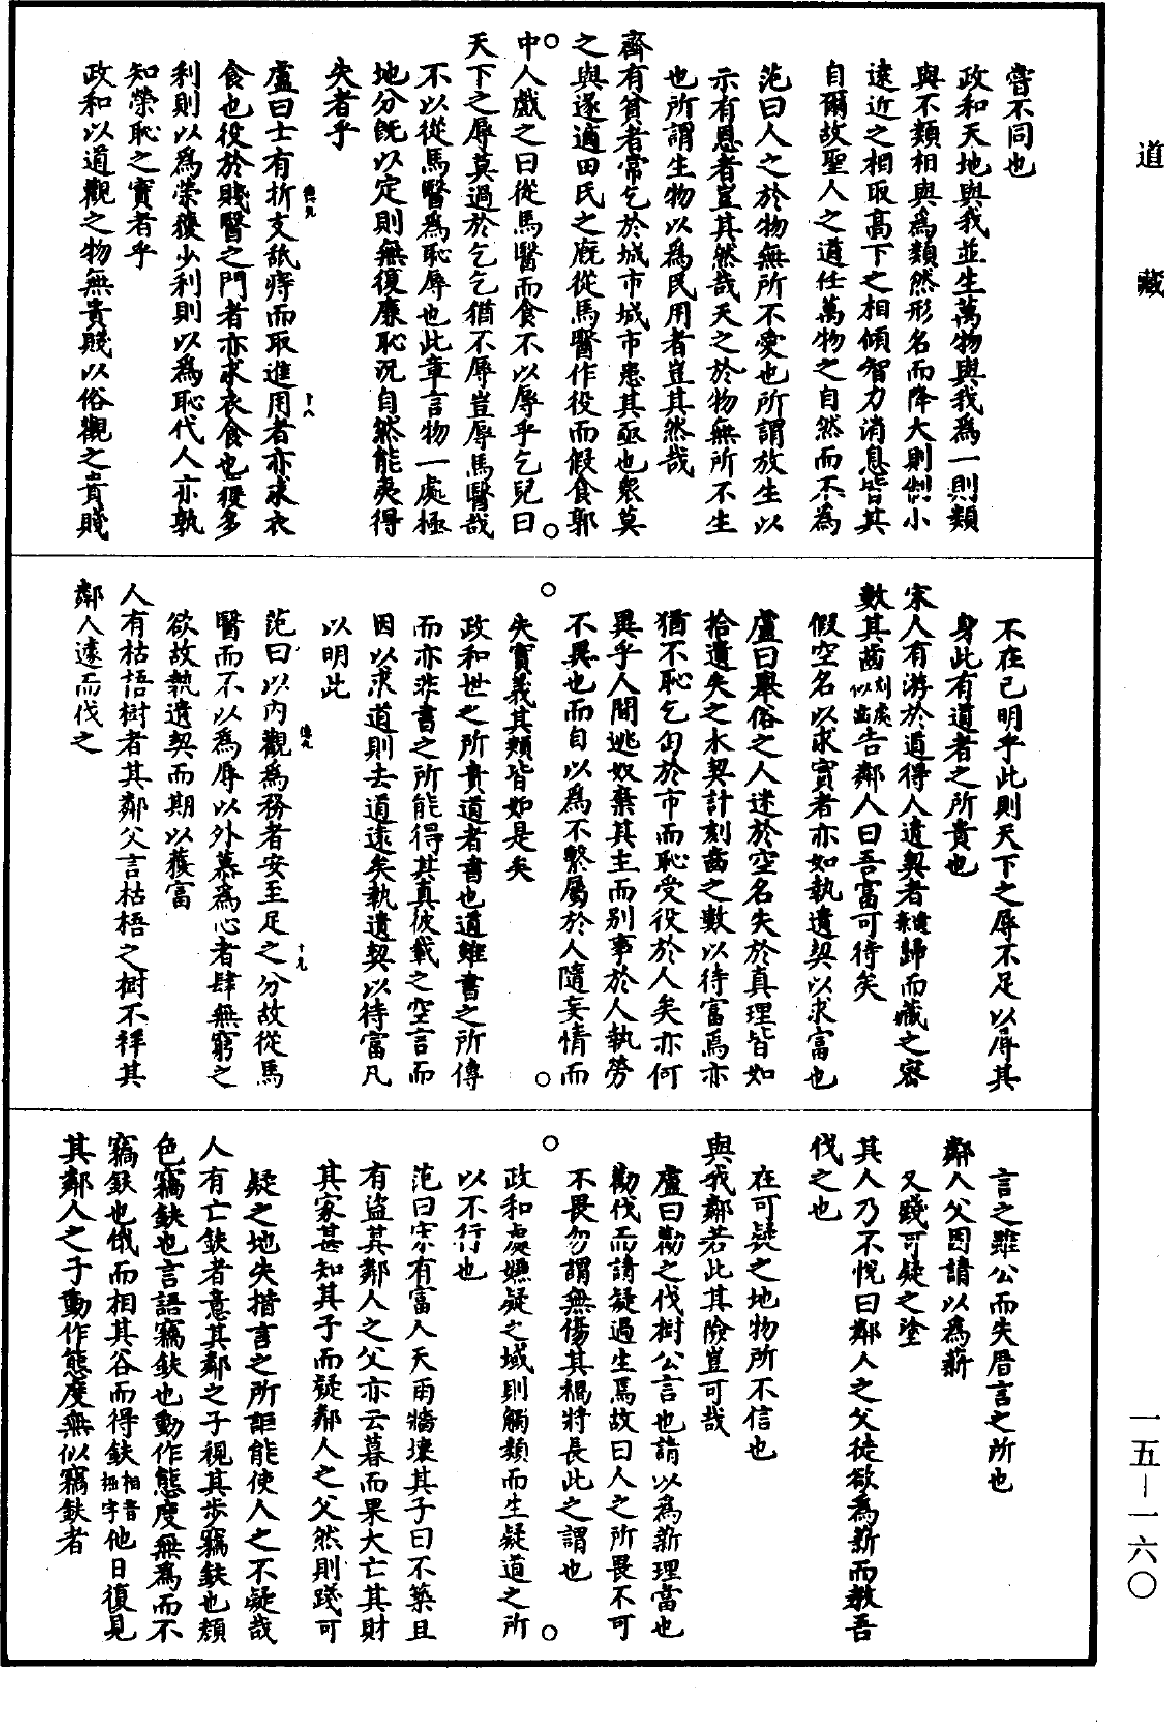 道藏
嘗不同也
政和天地與我並生萬物與我爲一則類
與不類相與爲類然形名而降大則制小
遠近之相取高下之相傾智力消息皆其
自爾故聖人之道任萬物之自然而不爲
范曰人之於物無所不愛也所謂放生以
示有恩者豈其然哉天之於物無所不生
也所謂生物以爲民用者豈其然哉
齊有貧者常乞於城市城市患其亟也衆莫
之與遂適田氏之廐從馬醫作役而假食郭
中人戲之曰從馬醫而食不以辱乎乞兒曰
天下之辱莫過於乞乞猶不辱豈辱馬醫哉
不以從馬醫爲恥辱也此章言物一處極
地分旣以定則無復廉恥況自然能夷得
失者乎
盧曰士有折支舐痔而取進用者亦求衣
食也役於賤醫之門者亦求衣食也獲多
利則以爲榮獲少利則以爲恥代人亦孰
知榮恥之實者乎
政和以道觀之物無貴賤以俗觀之貴賤
不在己明乎此則天下之辱不足以辱其
身此有道者之所貴也
宋人有游於道得人遺契者遺棄歸而藏之密
數其齒刻處似齒告鄰人曰吾富可待矣
假空名以求實者亦如執遺契以求富也
盧曰舉俗之人迷於空名失於真理皆如
拾遺失之木契計刻齒之數以待富焉亦
猶不恥乞匄於市而恥受役於人矣亦何
異乎人間逃奴棄其主而別事於人執勞
不異也而自以爲不繫屬於人隨妄情而
失實義其類皆如是矣
政和世之所貴道者書也道雖書之所傳
而亦非書之所能得其真彼載之空言而
因以求道則去道遠矣執遺契以待富凡
以明此
范曰以內觀爲務者安至足之分故從馬
醫而不以爲辱以外慕爲心者肆無窮之
欲故執遺契而期以獲富
人有枯梧樹者其鄰父言枯梧之樹不祥其
鄰人遽而伐之
言之雖公而失厝言之所也
鄰人父因請以爲薪
又踐可疑之塗
其人乃不悅曰鄰人之父徒欲爲薪而教吾
伐之也
在可疑之地物所不信也
與我鄰若此其險豈可哉
盧曰勸之伐樹公言也請以爲薪理當也
勸伐而請疑過生焉故曰人之所畏不可
不畏勿謂無傷其禍將長此之謂也
政和處嫌疑之域則觸類而生疑道之所
以不行也
范曰宋有富人天雨牆壞其子曰不築且
有盜其鄰人之父亦云暮而果大亡其財
其家甚知其子而疑鄰人之父然則踐可
疑之地失措言之所詎能使人之不疑哉
人有亡鈇者意其鄰之子視其步竊鈇也顏
色竊鈇也言語竊鈇也動作態度無爲而不
竊鈇也俄而相其谷而得鈇相音掘字他日復見
其鄰人之子動作態度無似竊鈇者
一五—一六〇